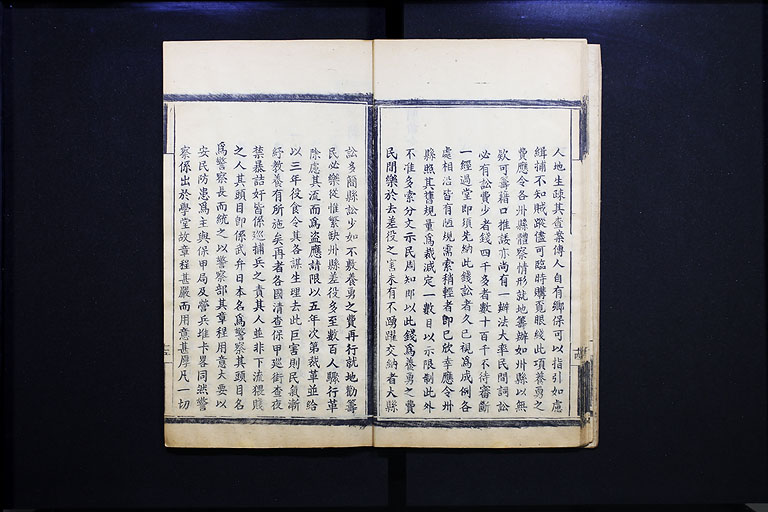 人地生疎其查案傳人自有鄉保可以指引如慮
緝捕不知賊蹤儘可臨時購覓眼綫此項養勇之
費應令各州縣體察情形就地籌辦如州縣以無
欵可籌藉口推諉亦尚有一辦法大率民間詞訟
必有訟費少者錢四千多者數十百千不待審斷
一經過堂即須先納此錢訟者久已視為成例各
處相沿皆有陋規需索稍輕者即已欣幸應令州
縣照其舊規量爲裁減定一數目以示限制此外
不准多索分文示民周知即以此錢爲養勇之費
民間樂於去差役之害未有不踴躍交納者大縣
訟多簡縣訟少如不敷養勇之費再行就地勸籌
民必樂從惟繁缺州縣差役多至數百人驟行革
除慮其流而爲盜應請限以五年次第裁革並給
以三年役食令其各謀生理去此巨害則民氣漸
紓教養有所施矣再者各國清查保甲巡街查夜
禁暴詰奸皆係巡捕兵之責其人並非下流猥賤
之人其頭目即係武弁日本名爲警察其頭目名
爲警察長而統之以警察部其章程用意大要以
安民防患爲主與保甲局及營兵堆卡畧同然警
察係出於學堂故章程甚嚴而用意甚厚凡一切